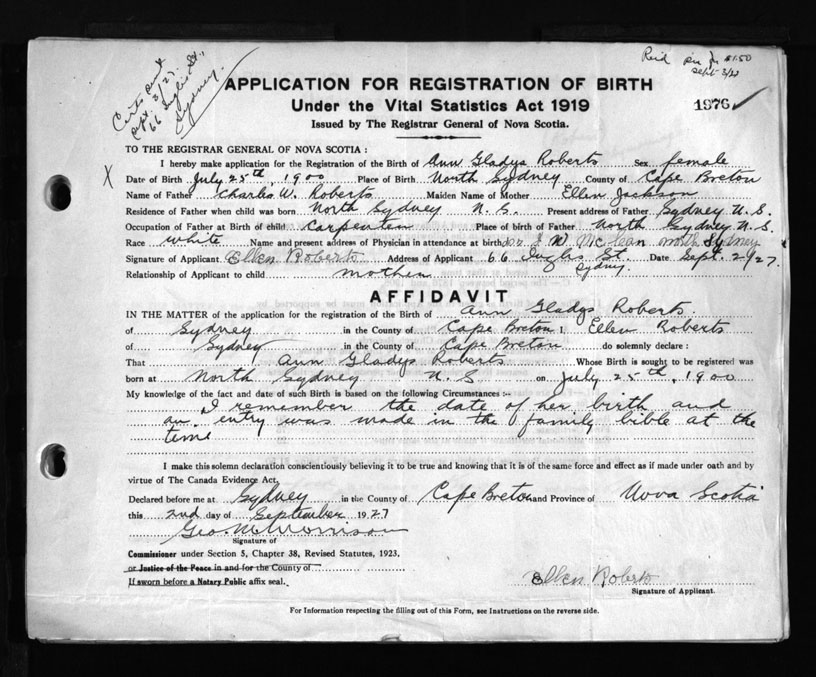 Certs sent
Sept. 3/27.
66 Inglis St.,
Sydney.
Sept 3/27
$1.50
APPLICATION FOR REGISTRATION OF BIRTH
Under the Vital Statistics Act 1919
Issued by The Registrar General of Nova Scotia.
1976 ✓
TO THE REGISTRAR GENERAL OF NOVA SCOTIA :
X
I hereby make application for the Registration of the Birth of Ann Gladys Roberts Sex female
Date of Birth July 25th, 1900 Place of Birth North Sydney County of Cape Breton
Name of Father Charles W. Roberts Maiden Name of Mother Ellen Jackson
Residence of Father when child was born North Sydney N. S. Present address of Father Sydney N. S.
Occupation of Father at Birth of child Carpenter Place of birth of Father North Sydney N. S.
Race white Name and present address of Physician in attendance at birth, Dr McLean North Sydney
Signature of Applicant Ellen Roberts Address of Applicant 66 Inglis St. Sydney. Date Sept. 2/27.
Relationship of Applicant to child mother
AFFIDAVIT
IN THE MATTER of the application for the registration of the Birth of Ann Gladys Roberts
of Sydney in the County of Cape Breton I, Ellen Roberts
of Sydney in the County of Cape Breton do solemnly declare :
That Ann Gladys Roberts Whose Birth is sought to be registered was
born at North Sydney N. S on July 25th, 1900
My knowledge of the fact and date of Birth is based on the following Circumstances :-
I remember the date of her birth and
an entry was made in the family bible at the
time
I make this solemn declaration conscientiously believing it to be true and knowing that it is of the same force and effect as if made under oath and by
virtue of The Canada Evidence Act.
Declared before me at Sydney in the County of Cape Breton and Province of Nova Scotia
this 2nd day of September 1927
Geo. M. Morrison
Signature of
Commissioner under Section 5, Chapter 38, Revised Statutes, 1923.
or Justice of the Peace in and for the County of
If sworn before a Notary Public affix seal.
Ellen Roberts
Signature of Applicant.
For Information respecting the filling out of this Form, see Instructions on the reverse side.